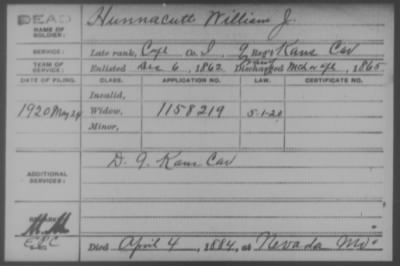 DEAD
NAME OF SOLDIER: Hunnacutt William J.
SERVICE: Late rank, Corpl Co. I, 9 Reg't Kans Cav
TERM OF SERVICE: Enlisted Dec 6, 1862 Discharged, 1865
DATE OF FILING. CLASS. APPLICATION NO. LAW. CERTIFICATE NO.
Invalid,
1920 May 24 Widow, 1158219 5-1-20
Minor,
ADDITIONAL SERVICES: D. 9. Kans Cav
Died April 4, 1884, at Nevada Mo.